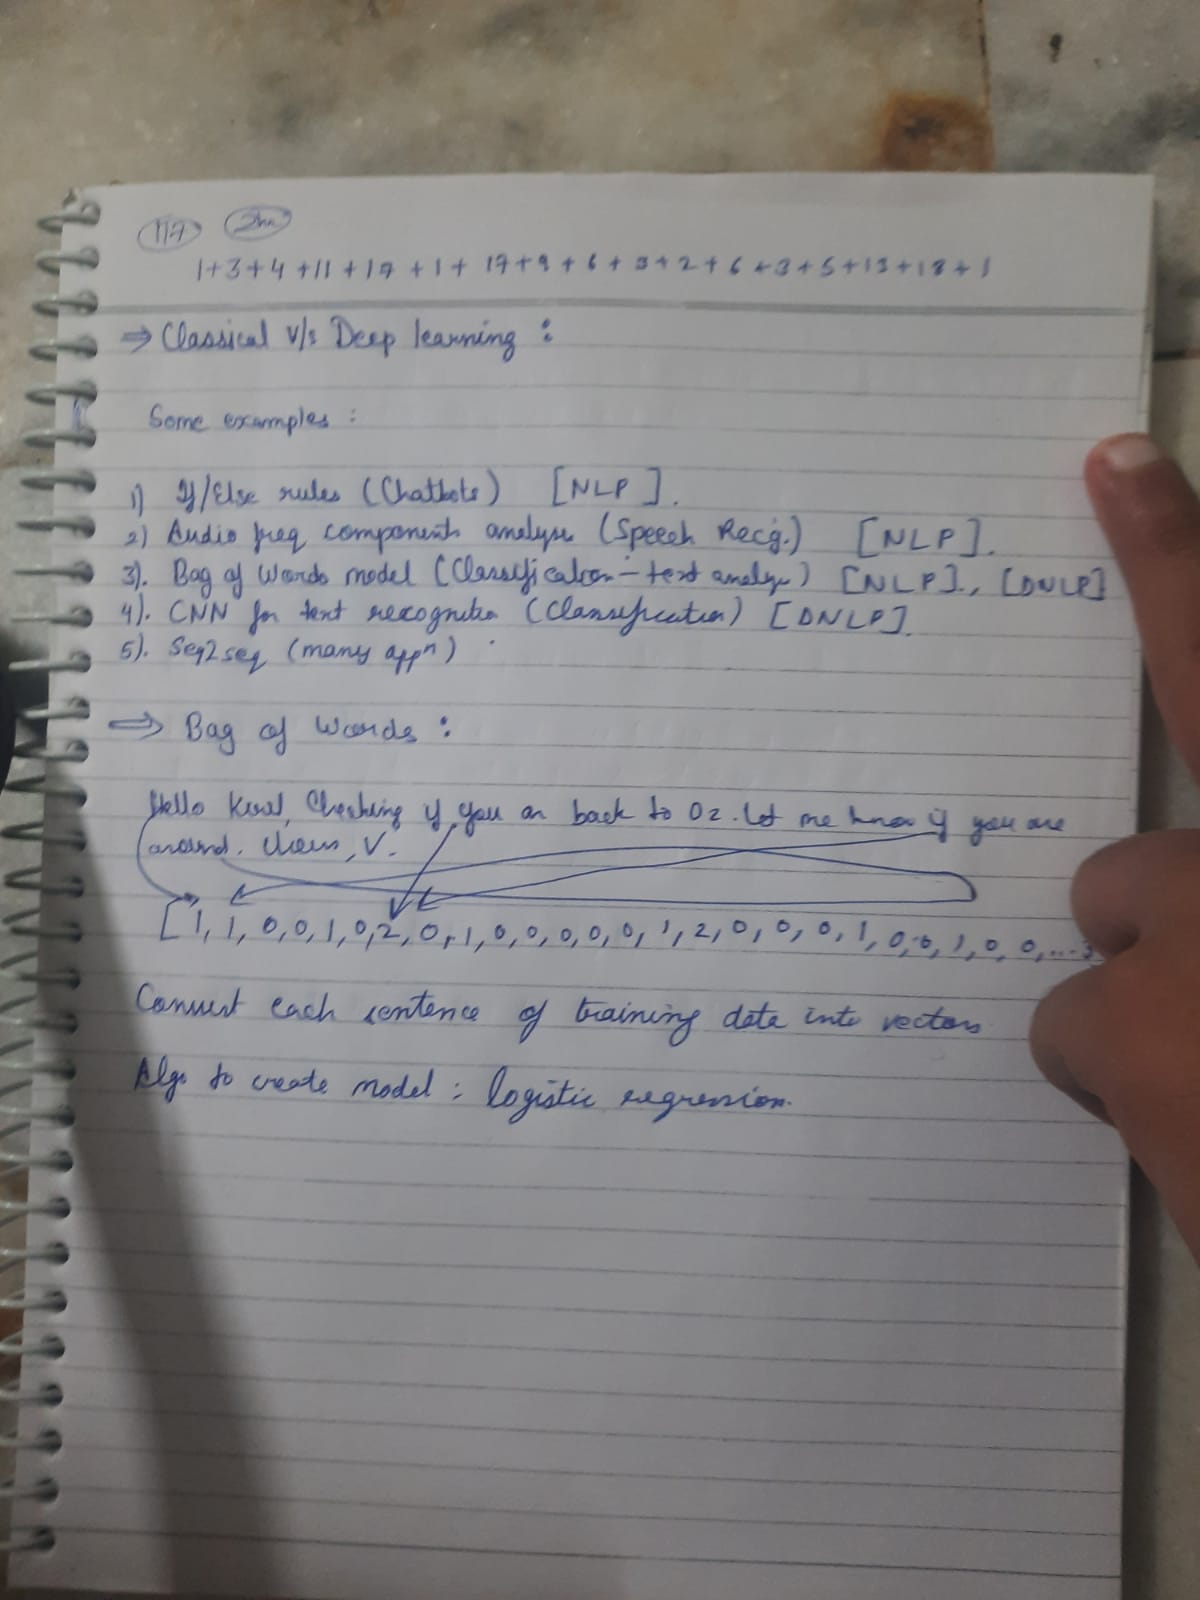 117 2hr
1+3+4+11+17+1+17+9+6+3+2+6+3+5+13+18+1
⇒ Classical V/s Deep learning :
Some examples :
1) If/Else rules (Chatbots) [NLP].
2) Audio freq components analysis (Speech Recg.) [NLP].
3). Bag of Words model (Classification - text analys) [NLP]., [DNLP]
4). CNN for text recognition (Classification) [DNLP].
5). Seq2seq (many appⁿ)
⇒ Bag of Words :
Hello Checking if you are back to Oz. Let me know if you are
around. Cheers, V.
[1, 1, 0, 0, 1, 0, 2, 0, 1, 0, 0, 0, 0, 0, 1, 2, 0, 0, 0, 1, 0, 0, 1, 0, 0, ...
Convert each sentence of training data into vectors
Algo to create model : logistic regression.